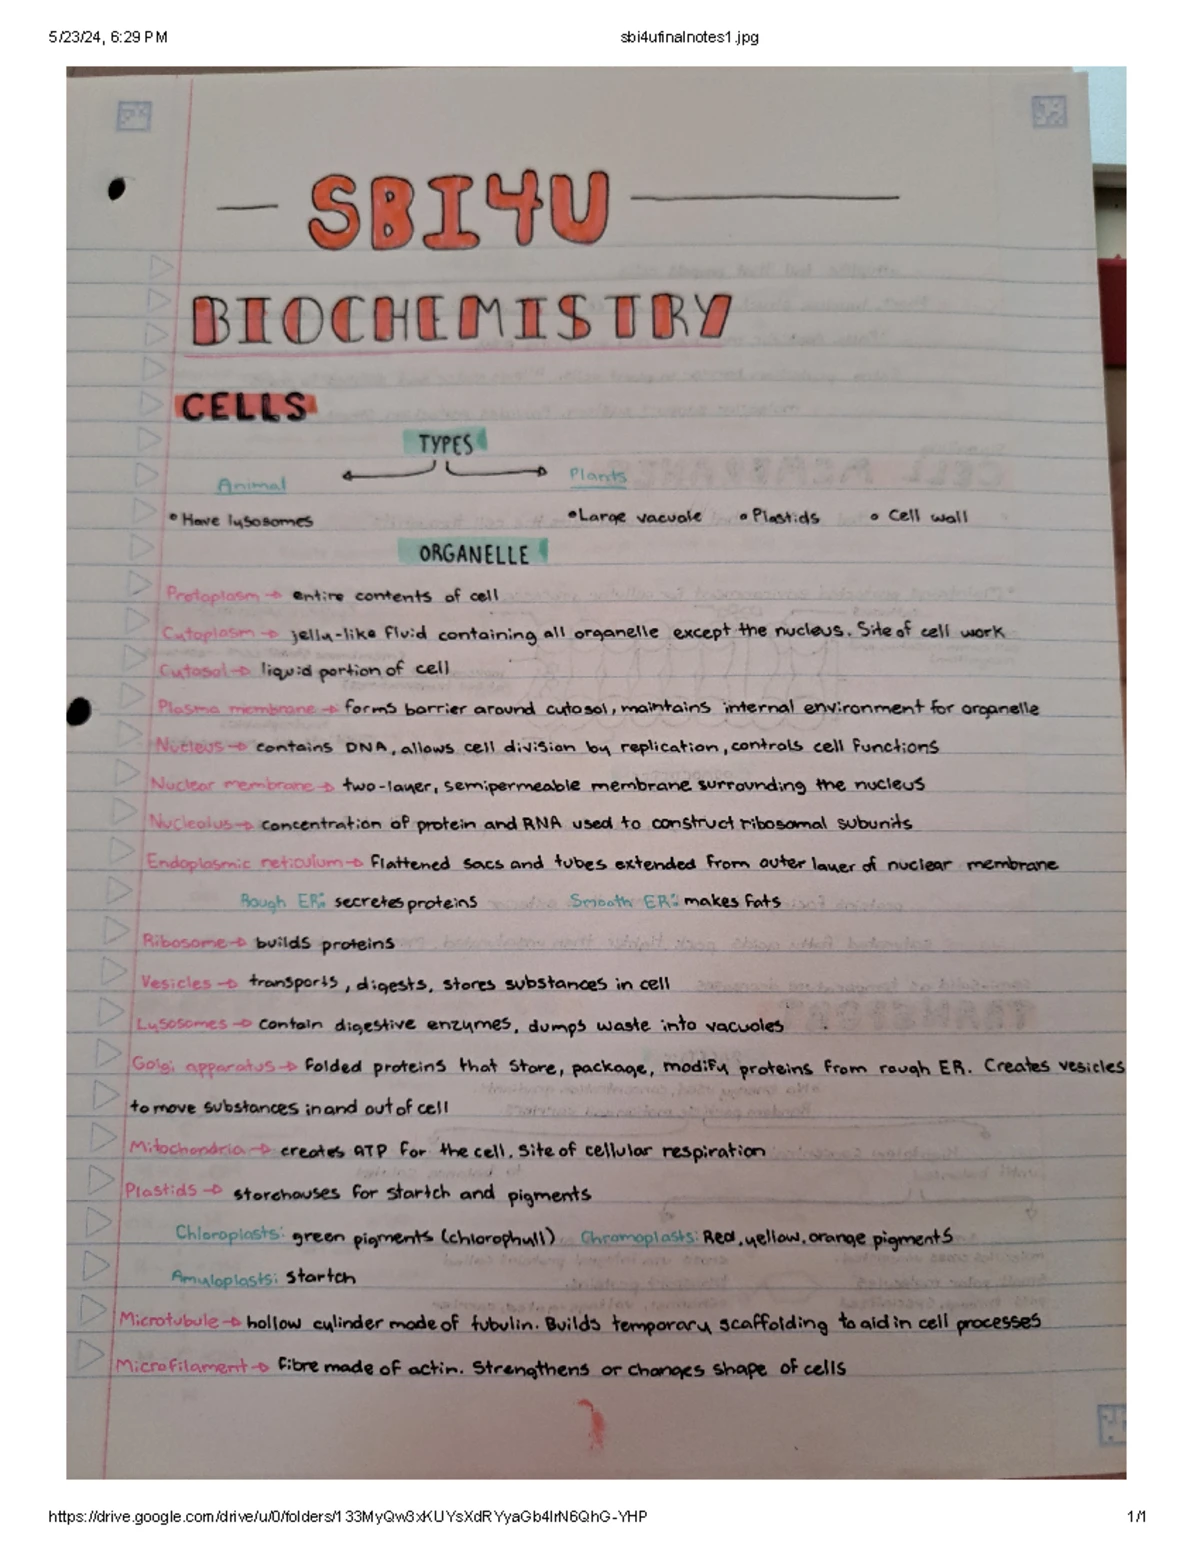 5/23/24, 6:29 PM sbi4ufinalnotes1.jpg
SBI4U
BIOCHEMISTRY
CELLS
TYPES
Animal Plants
• Have lysosomes • Large vacuole • Plastids • Cell wall
ORGANELLE
Protoplasm → entire contents of cell
Cytoplasm → jelly-like fluid containing all organelle except the nucleus. Site of cell work
Cytosol → liquid portion of cell
Plasma membrane → forms barrier around cytosol, maintains internal environment for organelle
Nucleus → contains DNA, allows cell division by replication, controls cell functions
Nuclear membrane → two-layer, semipermeable membrane surrounding the nucleus
Nucleolus → concentration of protein and RNA used to construct ribosomal subunits
Endoplasmic reticulum → flattened sacs and tubes extended from outer layer of nuclear membrane
Rough ER: secretes proteins Smooth ER: makes fats
Ribosome → builds proteins
Vesicles → transports, digests, stores substances in cell
Lysosomes → contain digestive enzymes, dumps waste into vacuoles
Golgi apparatus → folded proteins that store, package, modify proteins from rough ER. Creates vesicles
to move substances in and out of cell
Mitochondria → creates ATP for the cell. Site of cellular respiration
Plastids → storehouses for startch and pigments
Chloroplasts: green pigments (chlorophyll) Chromoplasts: Red, yellow, orange pigments
Amyloplasts: startch
Microtubule → hollow cylinder made of tubulin. Builds temporary scaffolding to aid in cell processes
Microfilament → fibre made of actin. Strengthens or changes shape of cells
https://drive.google.com/drive/u/0/folders/133MyQw8xKUYsXdRYyaGb4IrN6QhG-YHP 1/1